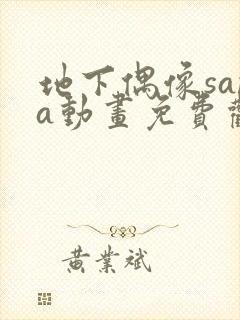 地下偶像sa
a動畫免費
黃業斌